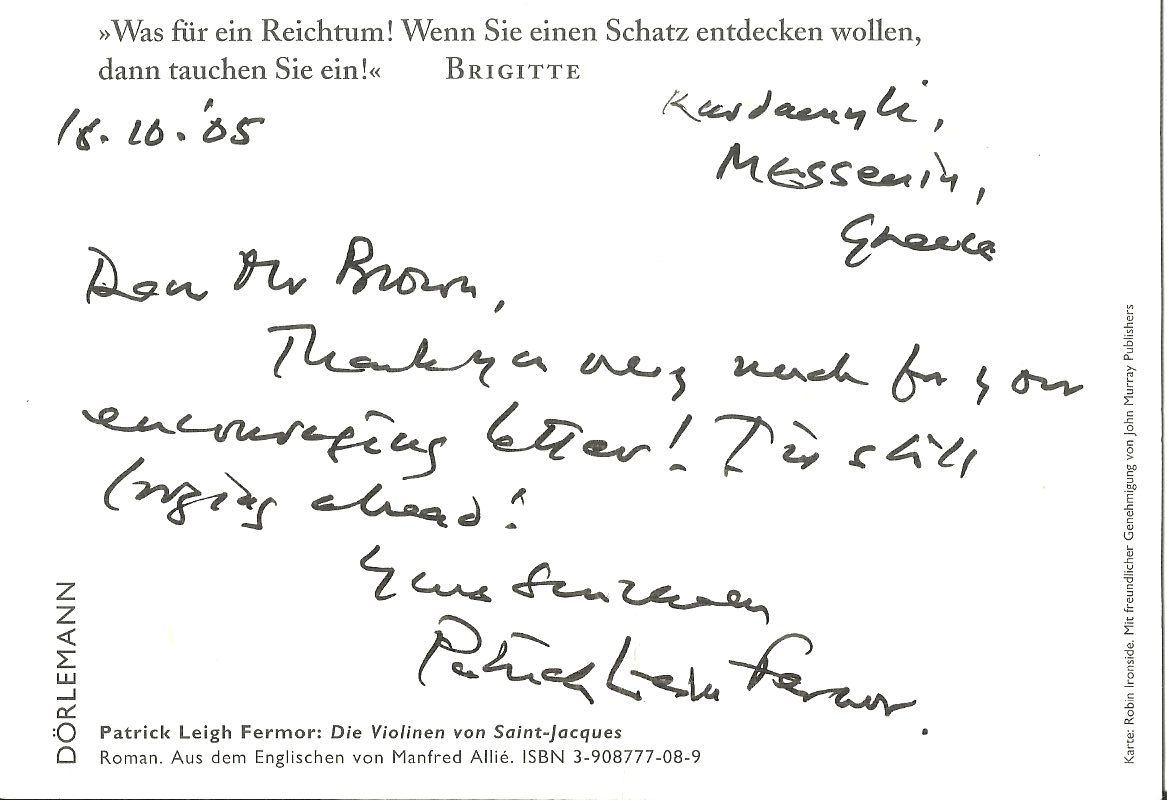 »Was für ein Reichtum! Wenn Sie einen Schatz entdecken wollen,
dann tauchen Sie ein!« BRIGITTE
18.10.'05
Kardamyli,
Messenia,
Greece
Dear Mr Brown,
Thank you very much for your
encouraging letter! I'm still
forging ahead!
Yours sincerely
Patrick Leigh Fermor.
DÖRLEMANN
Patrick Leigh Fermor: Die Violinen von Saint-Jacques
Roman. Aus dem Englischen von Manfred Allié. ISBN 3-908777-08-9
Karte: Robin Ironside. Mit freundlicher Genehmigung von John Murray Publishers